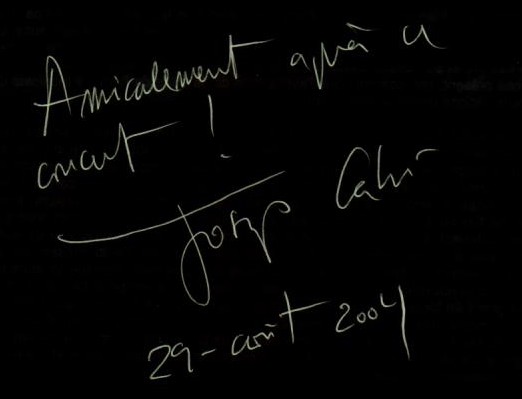 Amicalement après ce
concert !
Josep Cabré
29 - août 2004